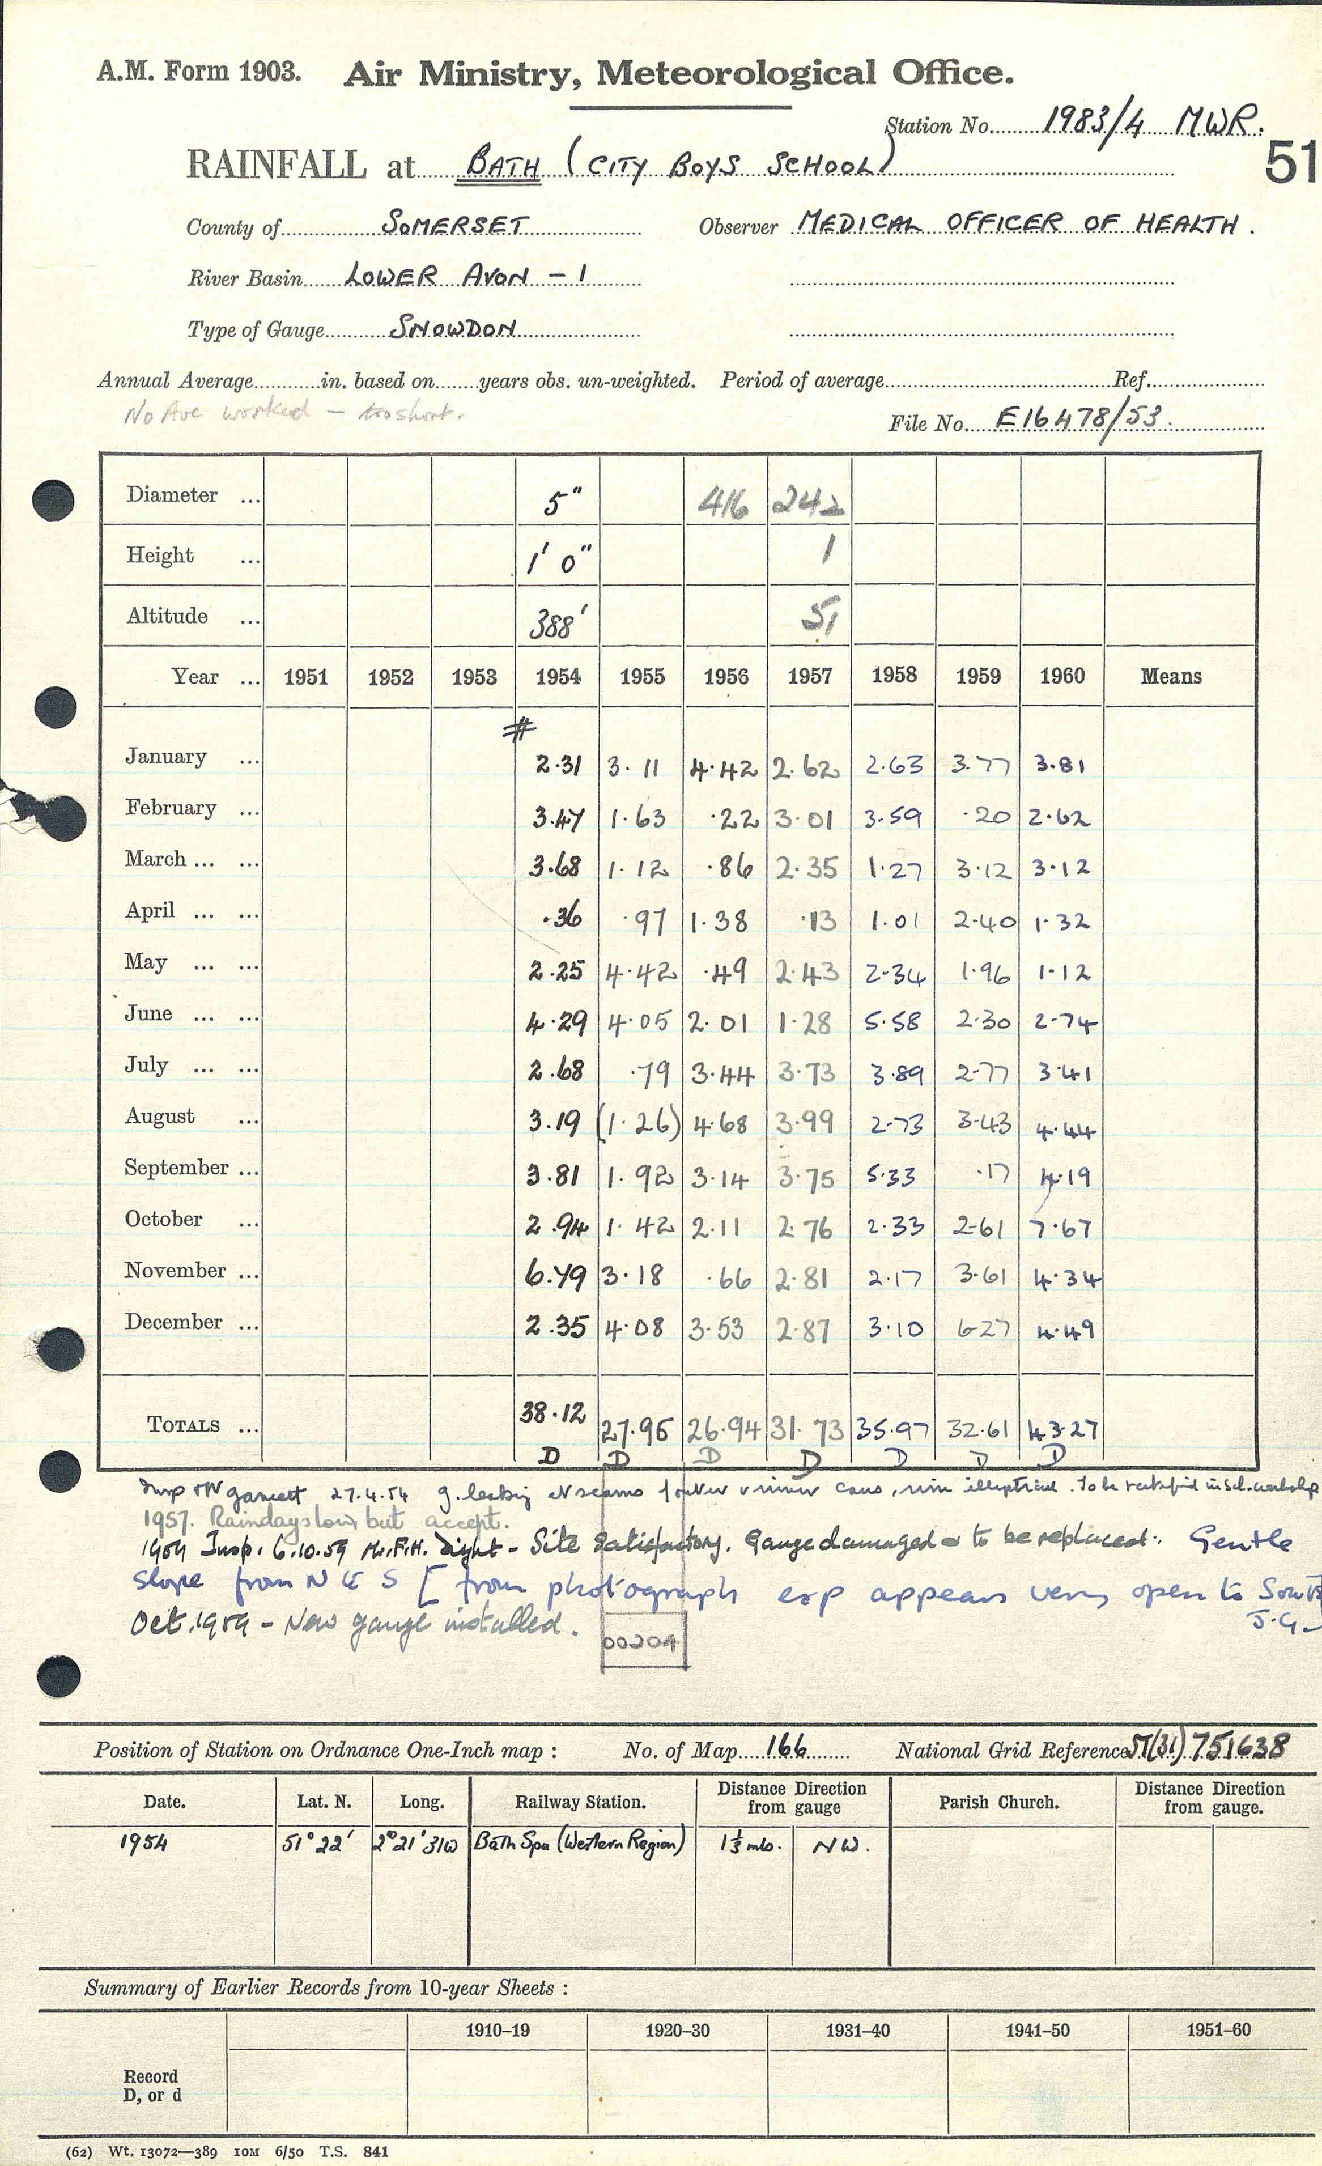 A.M. Form 1903. Air Ministry, Meteorological Office.
Station No. 1983/4 MWR.
51
RAINFALL at BATH (CITY BOYS SCHOOL)
County of SOMERSET Observer MEDICAL OFFICER OF HEALTH.
River Basin LOWER AVON - 1
Type of Gauge SNOWDON
Annual Average in. based on years obs. un-weighted. Period of average Ref.
No Ave worked - too short.
File No. E16478/53.
Diameter ... 5" 416 242
Height ... 1' 0" 1
Altitude ... 388' 51
Year ... 1951 1952 1953 1954 1955 1956 1957 1958 1959 1960 Means
#
January ... 2.31 3.11 4.42 2.62 2.63 3.77 3.81
February ... 3.47 1.63 .22 3.01 3.59 .20 2.62
March ... ... 3.68 1.12 .86 2.35 1.27 3.12 3.12
April ... ... .36 .97 1.38 .13 1.01 2.40 1.32
May ... ... 2.25 4.42 .49 2.43 2.34 1.96 1.12
June ... ... 4.29 4.05 2.01 1.28 5.58 2.30 2.74
July ... ... 2.68 .79 3.44 3.73 3.89 2.77 3.41
August ... 3.19 (1.26) 4.68 3.99 2.73 3.43 4.44
September ... 3.81 1.92 3.14 3.75 5.33 .17 4.19
October ... 2.94 1.42 2.11 2.76 2.33 2.61 7.67
November ... 6.79 3.18 .66 2.81 2.17 3.61 4.34
December ... 2.35 4.08 3.53 2.87 3.10 6.27 4.49
TOTALS ... 38.12 27.95 26.94 31.73 35.97 32.61 43.27
D D D D D D D
Insp 27.4.54 g. leaking at seams rim elliptical. To be in
1957. Raindays low, but accept.
1959 Insp. 6.10.59 Mr. F.H. Dight - Site Satisfactory. Gauge damaged to be replaced. Gentle
slope from N to S [from photograph exp appears very open to South
J.G.
Oct. 1959 - New gauge installed.
00204
Position of Station on Ordnance One-Inch map : No. of Map 166 National Grid Reference ST(31) 751638
Date. Lat. N. Long. Railway Station. Distance from Direction gauge Parish Church. Distance from Direction gauge.
1954 51° 22' 2° 21' 31W Bath Spa (Western Region) 1⅓ mls. NW.
Summary of Earlier Records from 10-year Sheets :
1910–19 1920–30 1931–40 1941–50 1951–60
Record
D, or d
(62) Wt. 13072—389 10M 6/50 T.S. 841